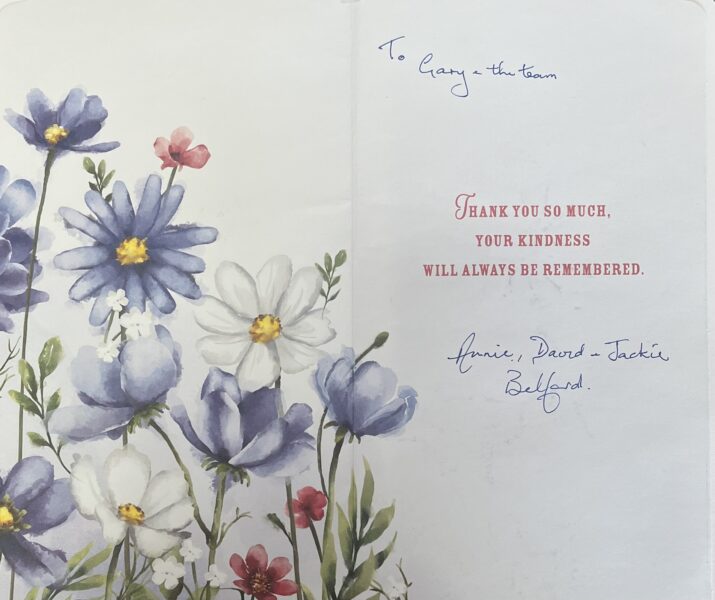 To
Gary & the team
THANK YOU SO MUCH,
YOUR KINDNESS
WILL ALWAYS BE REMEMBERED.
Annie, David & Jackie
Belford.